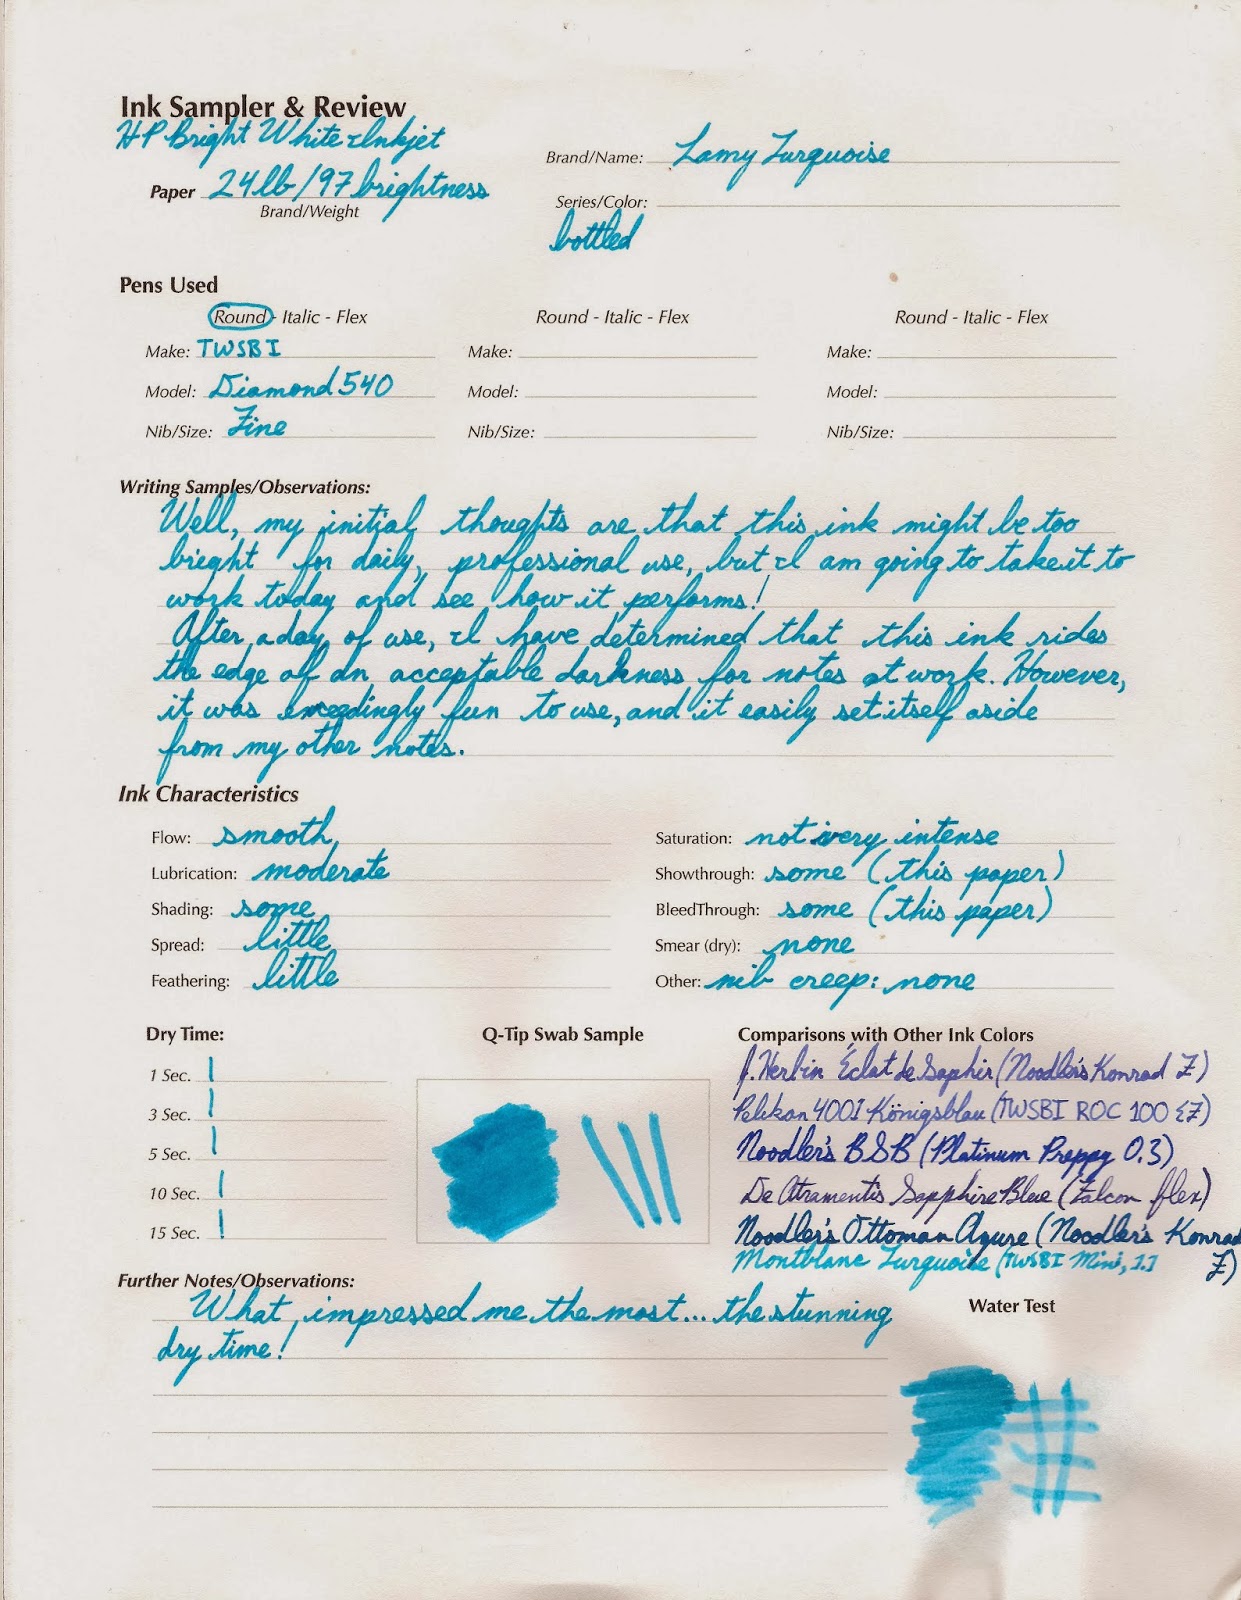 Ink Sampler & Review
HP Bright White Inkjet
Paper 24lb/97 brightness
Brand/Weight
Brand/Name: Lamy Turquoise
Series/Color:
bottled
Pens Used
Round - Italic - Flex
Make: TWSBI
Model: Diamond 540
Nib/Size: Fine
Round - Italic - Flex
Make:
Model:
Nib/Size:
Round - Italic - Flex
Make:
Model:
Nib/Size:
Writing Samples/Observations:
Well, my initial thoughts are that this ink might be too
bright for daily, professional use, but I am going to take it to
work today and see how it performs!
After a day of use, I have determined that this ink rides
the edge of an acceptable darkness for notes at work. However,
it was exceedingly fun to use, and it easily set itself aside
from my other notes.
Ink Characteristics
Flow: smooth
Lubrication: moderate
Shading: some
Spread: little
Feathering: little
Saturation: not very intense
Showthrough: some (this paper)
BleedThrough: some (this paper)
Smear (dry): none
Other: nib creep: none
Dry Time:
1 Sec.
3 Sec.
5 Sec.
10 Sec.
15 Sec.
Q-Tip Swab Sample
Comparisons with Other Ink Colors
J. Herbin Éclat de Saphir (Noodler's Konrad F)
Pelikan 4001 Königsblau (TWSBI ROC 100 EF)
Noodler's BSB (Platinum Preppy 0.3)
De Atramentis Sapphire Blue (Falcon flex)
Noodler's Ottoman Azure (Noodler's Konrad
F)
Montblanc Turquoise (TWSBI Mini, 1.1
Further Notes/Observations:
What impressed me the most... the stunning
dry time!
Water Test